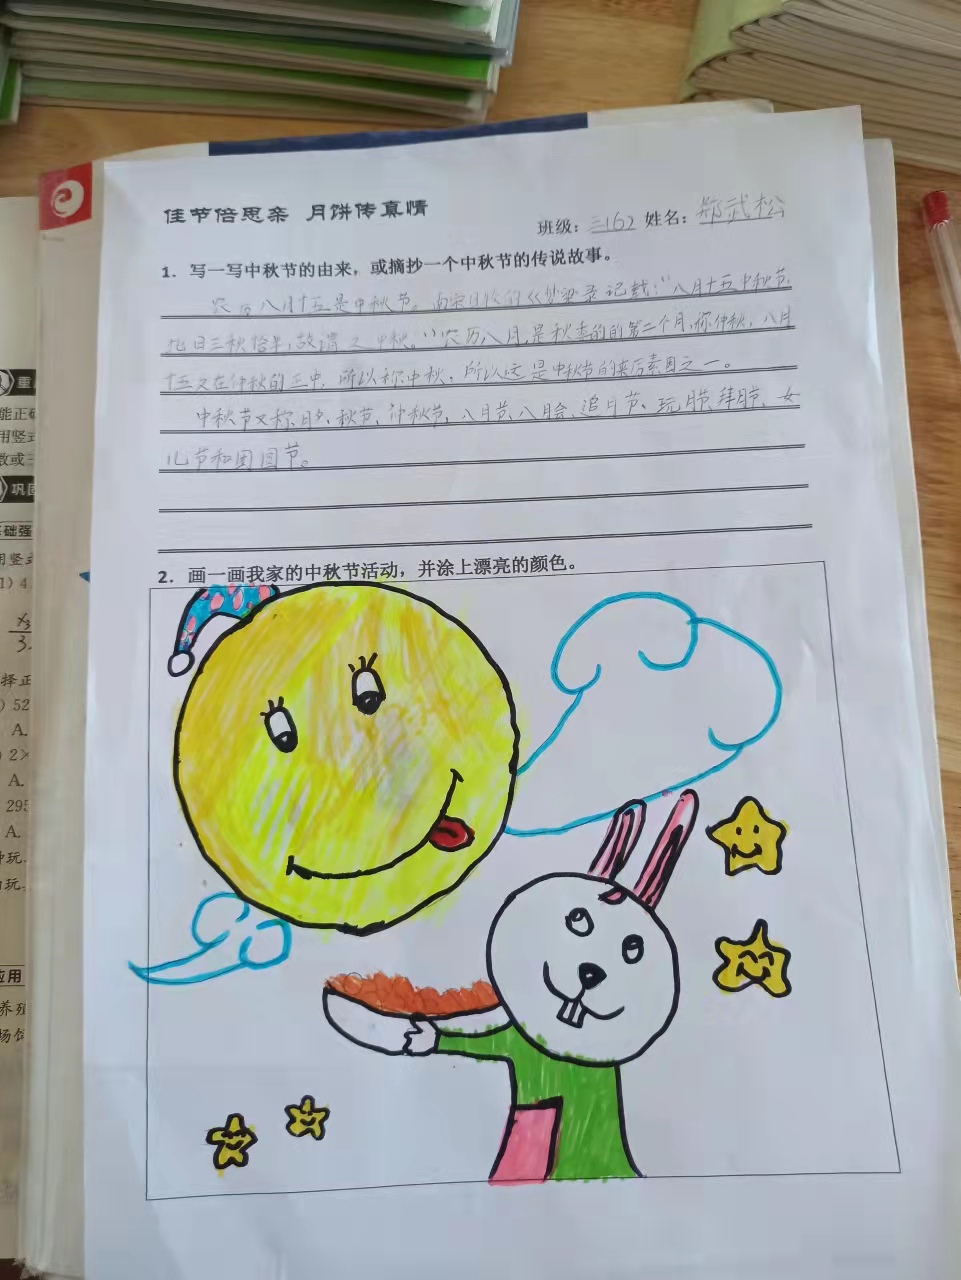 佳节倍思亲 月饼传真情
班级：三(6) 姓名：郑武松
1. 写一写中秋节的由来，或摘抄一个中秋节的传说故事。
农历八月十五是中秋节。南宋 的《梦粱录记载："八月十五中秋节,
此日三秋恰半,故谓之中秋。"农历八月,是秋季的的第二个月,称仲秋,八月
十五又在仲秋的三中,所以称中秋,所以这是中秋节的来历素因之一。
中秋节又称月夕、秋节、仲秋节、八月节、八月会、追月节、玩月节、拜月节、女
儿节和团圆节。
2. 画一画我家的中秋节活动，并涂上漂亮的颜色。
重
能正确
用竖式
数或三
巩固
基础强
用竖式
1) 4
择正
) 52
A.
) 2×
A.
295
A.
中玩
玩
应用
养殖
场饲